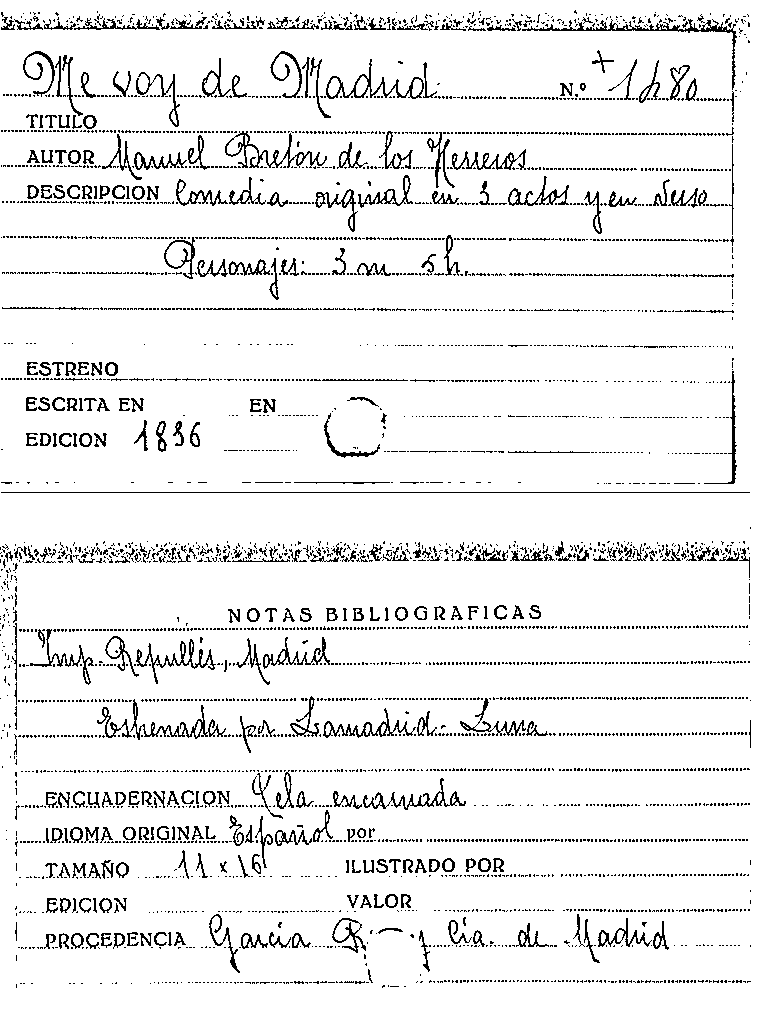 Me voy de Madrid. N.º + 1480
TITULO
AUTOR Manuel Bretón de los Herreros
DESCRIPCION Comedia original en 3 actos y en verso
Personajes: 3 m 5 h.
ESTRENO
ESCRITA EN EN
EDICION 1836
NOTAS BIBLIOGRAFICAS
Imp. Repullés, Madrid
Estrenada por Lamadrid - Luna
ENCUADERNACION Tela encarnada
IDIOMA ORIGINAL Español por
TAMAÑO 11 x 16 ILUSTRADO POR
EDICION VALOR
PROCEDENCIA García y Cía. de Madrid